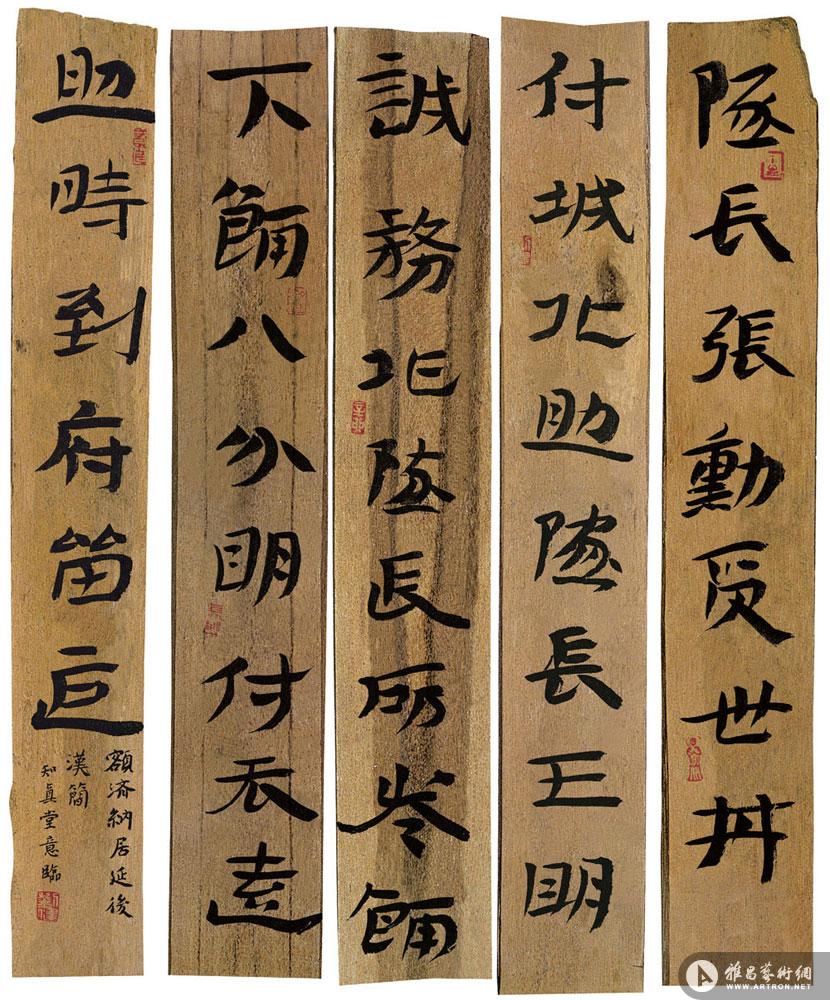 隊長張勳受世井
付城北助隧長王明
誠務北隧長所岑餔
下餔八分明付吞遠
助時到府留
額濟納居延後
漢簡
知真堂意臨
雅昌藝術網
WWW.ARTRON.NET